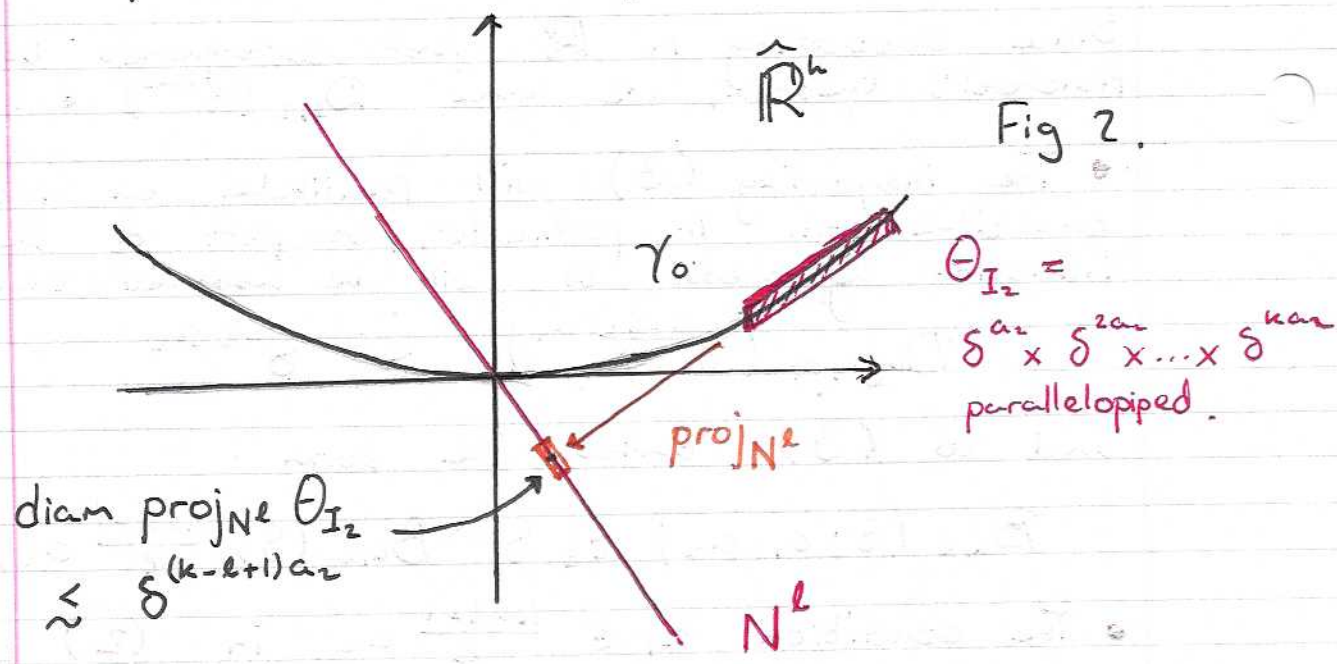 ℝ̂ᵏ
Fig 2.
γ₀
Θ_{I₂} =
δ^{a₂} × δ^{2a₂} × ... × δ^{ka₂}
parallelopiped.
proj_{N^ℓ}
diam proj_{N^ℓ} Θ_{I₂}
≲ δ^{(k-ℓ+1)a₂}
N^ℓ